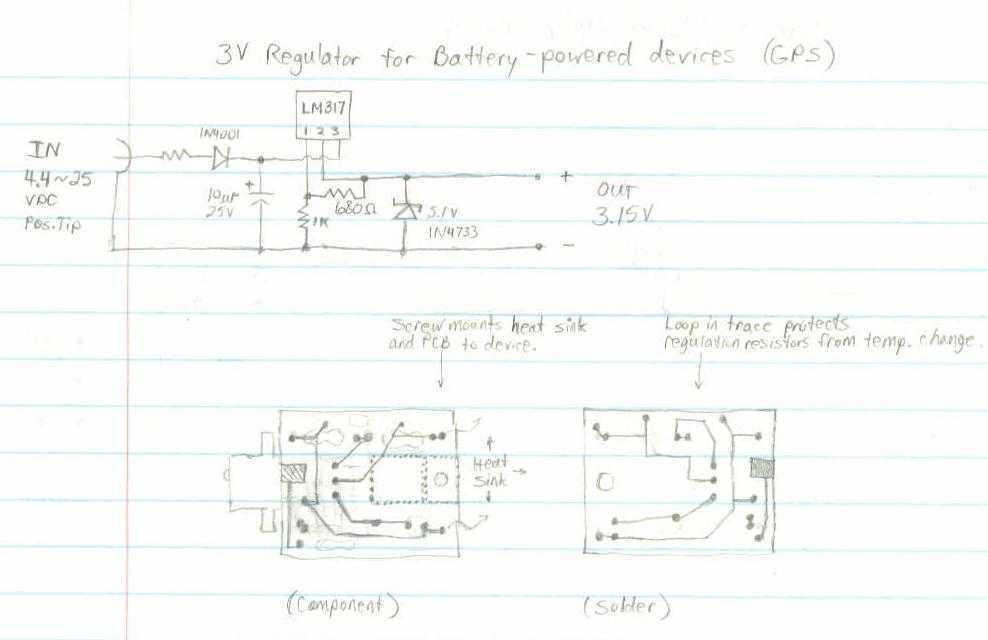 3V Regulator for Battery-powered devices (GPS)
LM317
1 2 3
1N4001
IN
4.4~25
VDC
Pos.Tip
+
10µF
25V
680Ω
1K
5.1V
1N4733
+
OUT
3.15V
-
Screw mounts heat sink
and PCB to device.
Loop in trace protects
regulation resistors from temp. change.
Heat
Sink
(Component)
(Solder)